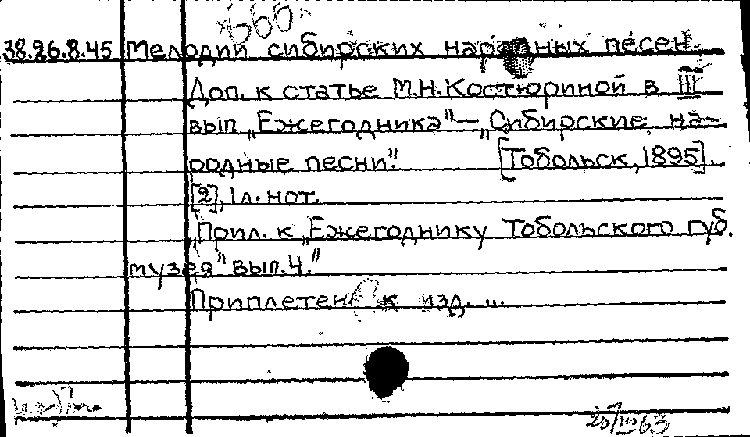 560
38.26.8.45 Мелодии сибирских народных песен.
Доп. к статье М.Н.Костюриной в III
вып. „Ежегодника"—„Сибирские на-
родные песни". [Тобольск, 1895].
[2], 1 л. нот.
„Прил. к „Ежегоднику Тобольского губ.
музея" вып. 4."
Приплетен к изд. ...
63